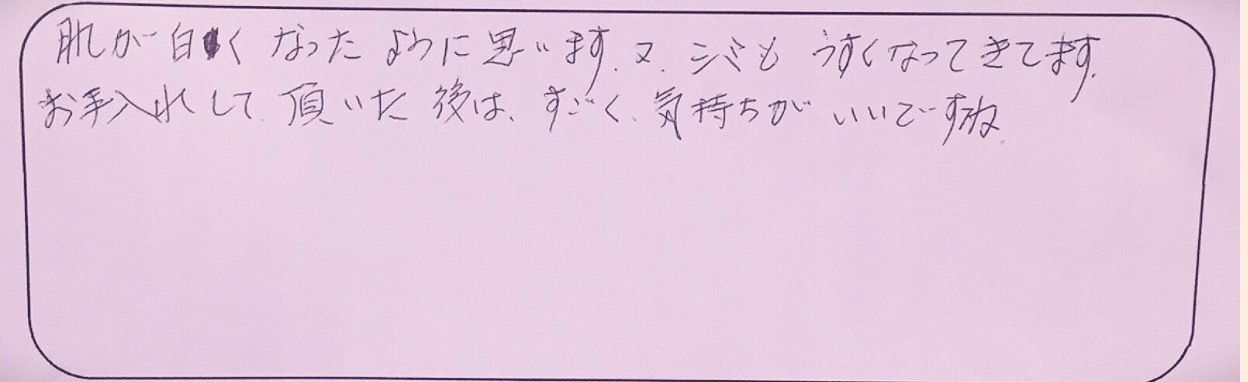 肌が白くなったように思います。又、シミもうすくなってきてます。
お手入れして頂いた後は、すごく、気持ちがいいですね。